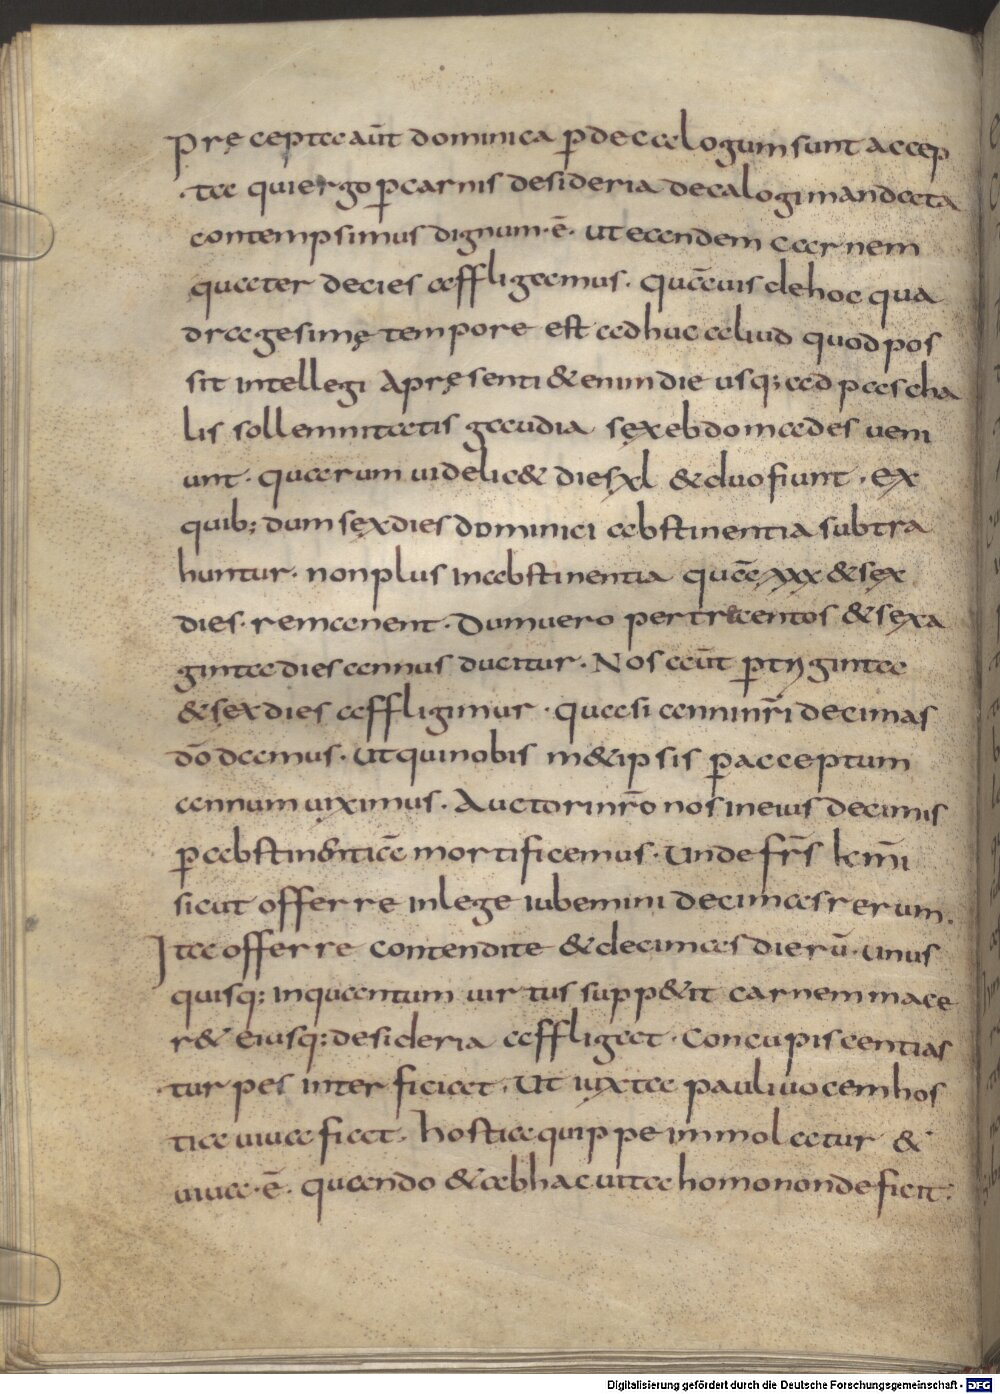 Pręcepta aūt dominica p̄ decalogum sunt accep
ta qui ergo p̄ carnis desideria decalogi mandata
contempsimus dignum·ē· ut eandem carnem
quater decies affligamus· quāuis de hoc qua
dragesimę tempore est adhuc aliud quod pos
sit intellegi Apręsenti & enim die usq; ad pascha
lis sollemnitatis gaudia sęx ebdomades ueni
unt· quarum uidelic& dies xl & duo fiunt· ex
quib; dum sęx dies dominici abstinentia subtra
huntur· non plus in abstinentia quā xxx & sex
dies· remanent· Dum uero per trecentos & sexa
ginta dies annus ducitur· Nos aūt p̄ triginta
& sęx dies affligimur· quasi anni nr̄i decimas
dō damus· Ut qui nobis m&ipsis p̄ acceptum
annum uiximus· Auctori nr̄o nos in eius decimis
p̄ abstinentiā mortificemus· Unde fr̄s km̄i
sicut offerre in lege iubemini decimas rerum·
Ita offerre contendite & decimas dierū· Unus
quisq; inquantum uirtus supp&it carnem mace
r& eiusq; desideria affligat· Concupiscentias
turpes interficiat· Ut iuxta pauli uocem hos
tia uiua fiat· hostia quippe immolatur &
uiua·ē· quando & ab hac uita homo non deficit·
Digitalisierung gefördert durch die Deutsche Forschungsgemeinschaft - DFG